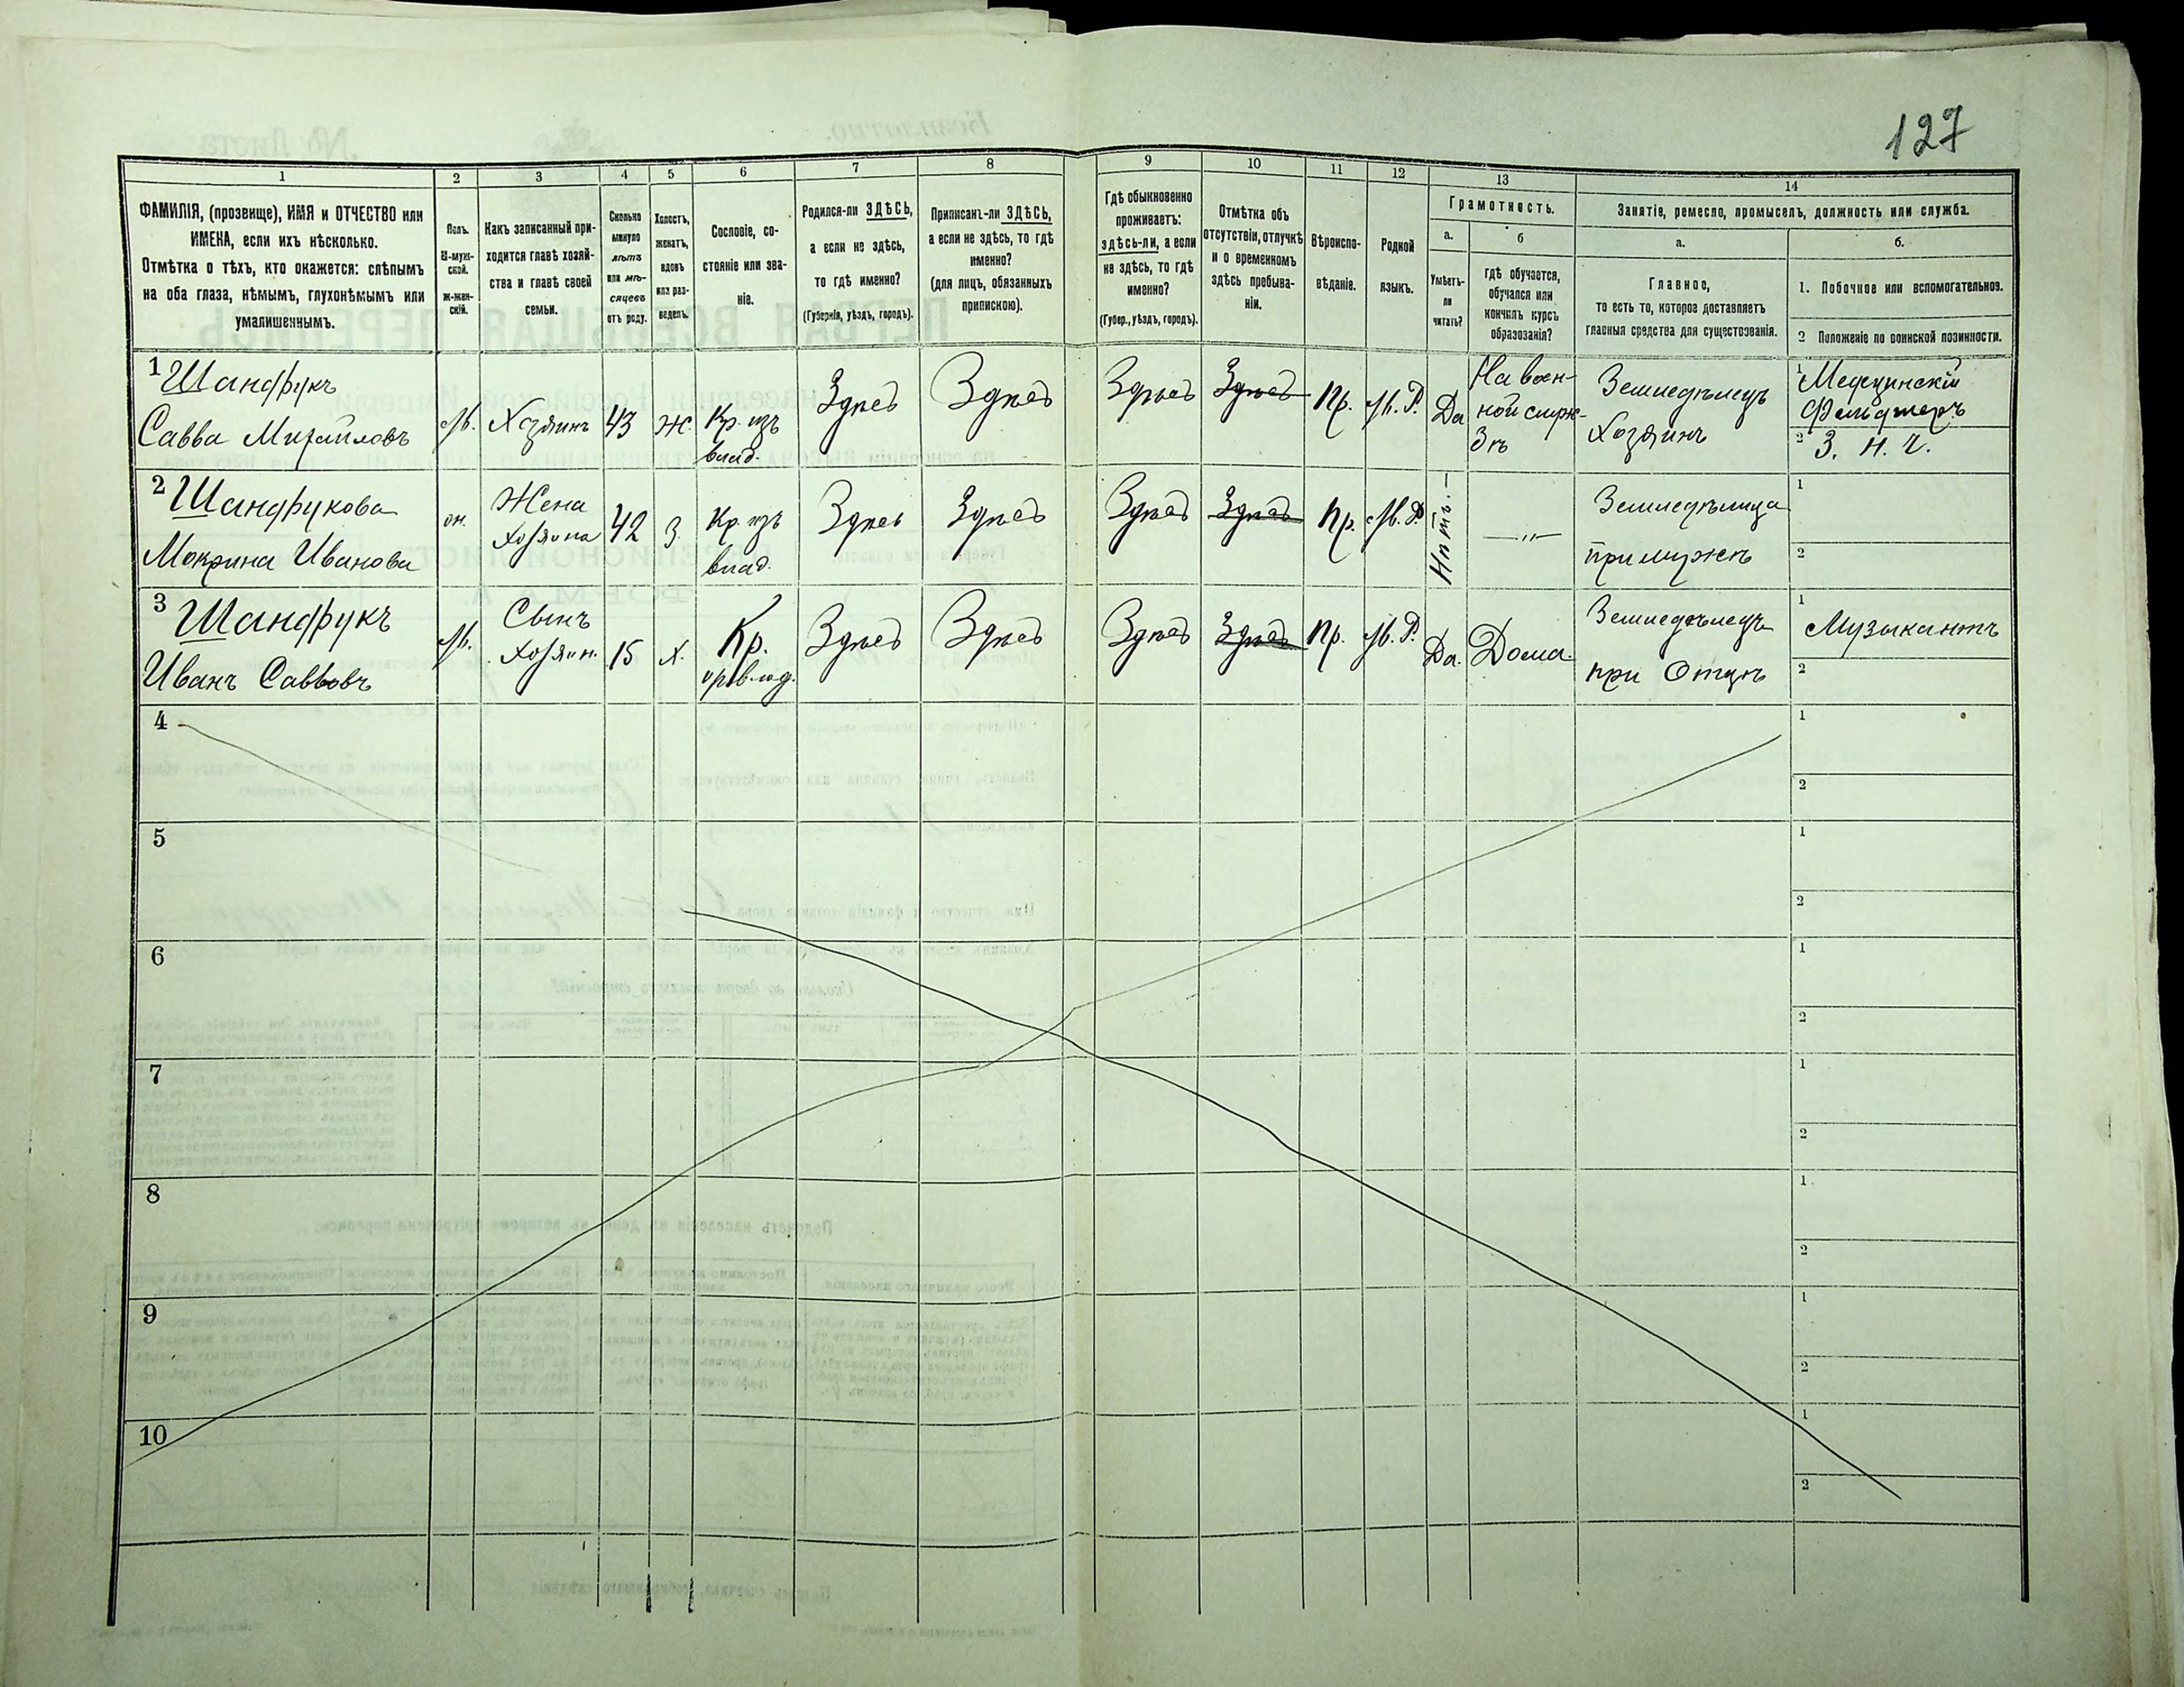 127
1
2
3
4
5
6
7
8
9
10
11
12
13
14
ФАМИЛІЯ, (прозвище), ИМЯ и ОТЧЕСТВО или
ИМЕНА, если ихъ нѣсколько.
Отмѣтка о тѣхъ, кто окажется: слѣпымъ
на оба глаза, нѣмымъ, глухонѣмымъ или
умалишеннымъ.
Полъ.
М-муж-
ской.
Ж-жен-
скій.
Какъ записанный при-
ходится главѣ хозяй-
ства и главѣ своей
семьи.
Сколько
минуло
лѣтъ
или мѣ-
сяцевъ
отъ роду.
Холостъ,
женатъ,
вдовъ
или раз-
веденъ.
Сословіе, со-
стояніе или зва-
ніе.
Родился-ли ЗДѢСЬ,
а если не здѣсь,
то гдѣ именно?
(Губернія, уѣздъ, городъ).
Приписанъ-ли ЗДѢСЬ,
а если не здѣсь, то гдѣ
именно?
(для лицъ, обязанныхъ
припискою).
Гдѣ обыкновенно
проживаетъ:
здѣсь-ли, а если
не здѣсь, то гдѣ
именно?
(Губер., уѣздъ, городъ).
Отмѣтка объ
отсутствіи, отлучкѣ
и о временномъ
здѣсь пребыва-
ніи.
Вѣроиспо-
вѣданіе.
Родной
языкъ.
Грамотность.
а.
Умѣетъ-
ли
читать?
б
гдѣ обучается,
обучался или
кончилъ курсъ
образованія?
Занятіе, ремесло, промыселъ, должность или служба.
а.
Главное,
то есть то, которое доставляетъ
главныя средства для существованія.
б.
1. Побочное или вспомогательное.
2 Положеніе по воинской повинности.
1 Шандрукъ
Савва Михайловъ
М.
Хозяинъ
43
Ж.
Кр. изъ
влад.
Здѣсь
Здѣсь
Здѣсь
Здѣсь
Пр.
М. Р.
Да
На воен-
ной служ-
бѣ
Земледѣлецъ
Хозяинъ
1 Медицинскій
Фельдшеръ
2 З. н. ч.
2 Шандрукова
Мокрина Иванова
Ж.
Жена
хозяина
42
З.
Кр. изъ
влад.
Здѣсь
Здѣсь
Здѣсь
Здѣсь
Пр.
М. Р.
Нѣтъ.
—"—
Земледѣлица
при мужѣ
1
2
3 Шандрукъ
Иванъ Саввовъ
М.
Сынъ
хозяин.
15
Х.
Кр.
Здѣсь
Здѣсь
Здѣсь
Здѣсь
Пр.
М. Р.
Да.
Дома.
Земледѣлецъ
при Отцѣ
1 Музыкантъ
2
4
1
2
5
1
2
6
1
2
7
1
2
8
1
2
9
1
2
10
1
2